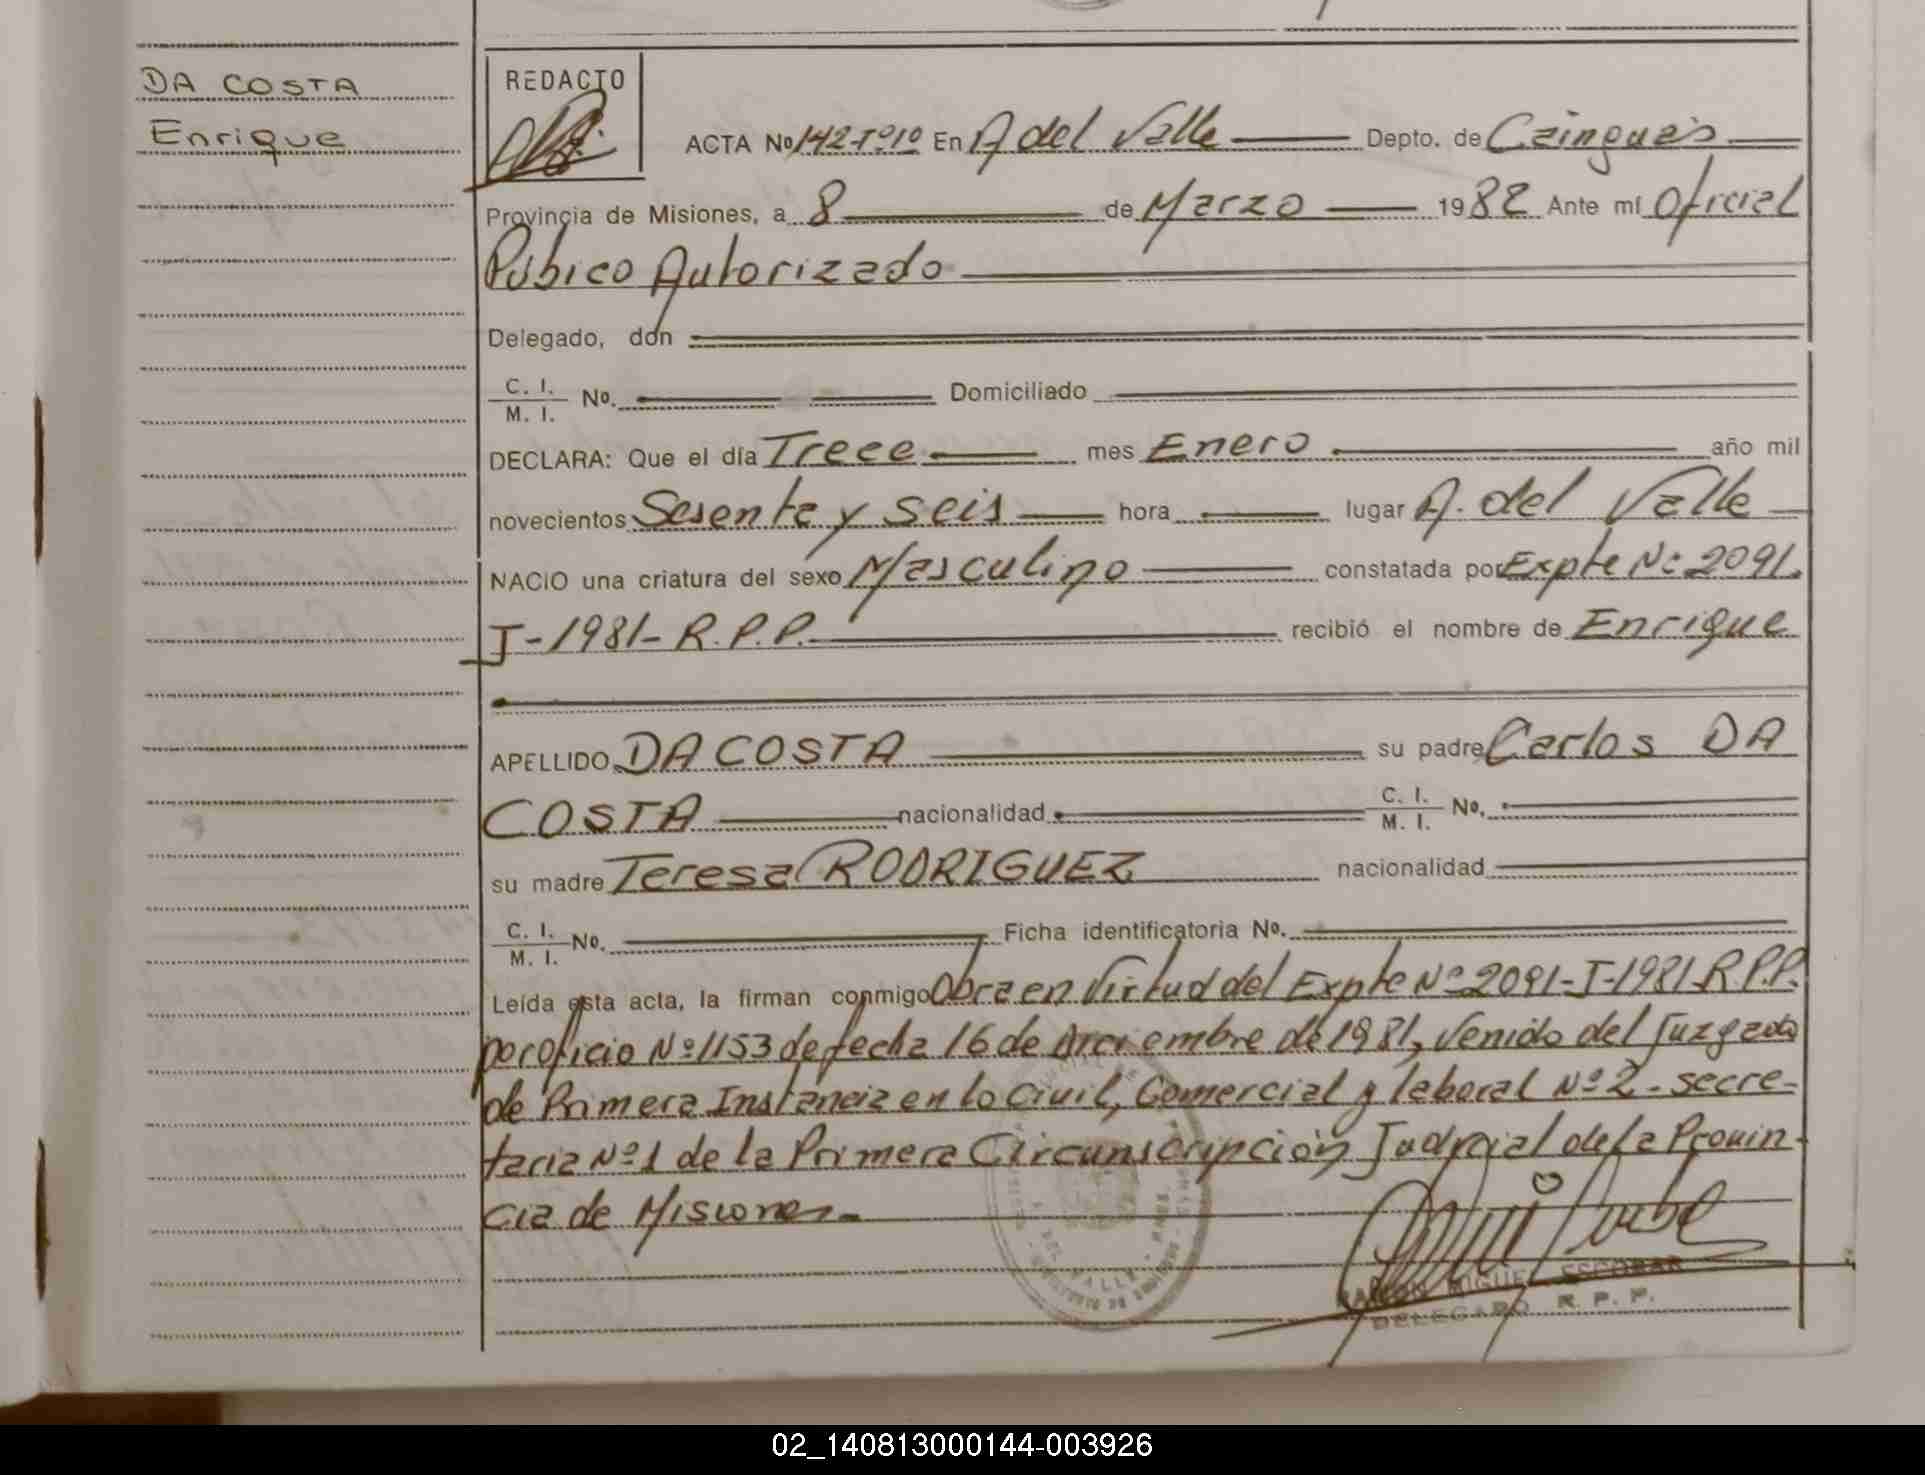 DA COSTA
Enrique
REDACTO
ACTA Nº 142-Tº1º En A del Valle Depto. de Cainguás
Provincia de Misiones, a 8 de Marzo 1982 Ante mí Oficial
Púbico Autorizado
Delegado, don
C. I.
M. I. Nº. Domiciliado
DECLARA: Que el día Trece mes Enero año mil
novecientos Sesenta y seis hora lugar A. del Valle
NACIO una criatura del sexo Masculino constatada por Expte Nº 2091
J-1981-R.P.P. recibió el nombre de Enrique
APELLIDO DA COSTA su padre Carlos DA
COSTA nacionalidad C. I. M. I. Nº.
su madre Teresa RODRIGUEZ nacionalidad
C. I.
M. I. Nº. Ficha identificatoria Nº.
Leída esta acta, la firman conmigo Obra en Virtud del Expte Nº 2091-J-1981-R.P.P.
por oficio Nº 1153 de fecha 16 de Diciembre de 1981, Venido del Juzgado
de Primera Instancia en lo Civil, Comercial y laboral Nº 2 - secre-
taria Nº 1 de la Primera Circunscripción Judicial de la Provin-
cia de Misiones.-
RAMON MIGUEL ESCOBAR
DELEGADO R. P. P.
02_140813000144-003926